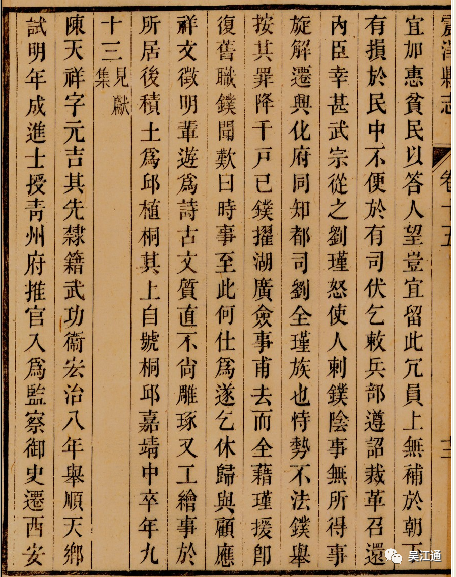 震澤縣志 卷十五 十三
宜加惠貧民以答人望豈宜留此冗員上無補於朝
有損於民中不便於有司伏乞敕兵部遵詔裁革召還
內臣幸甚武宗從之劉瑾怒使人刺鏷陰事無所得事
旋解遷興化府同知都司劉全瑾族也恃勢不法鏷舉
按其罪降千戶已鏷擢湖廣僉事甫去而全藉瑾援卽
復舊職鏷聞歎曰時事至此何仕爲遂乞休歸與顧應
祥文徵明輩遊爲詩古文質直不尙雕琢又工繪事於
所居後積土爲邱植桐其上自號桐邱嘉靖中卒年九
十三見獻集
陳天祥字元吉其先隸籍武功衛宏治八年舉順天鄉
試明年成進士授靑州府推官入爲監察御史遷西安
吴江通